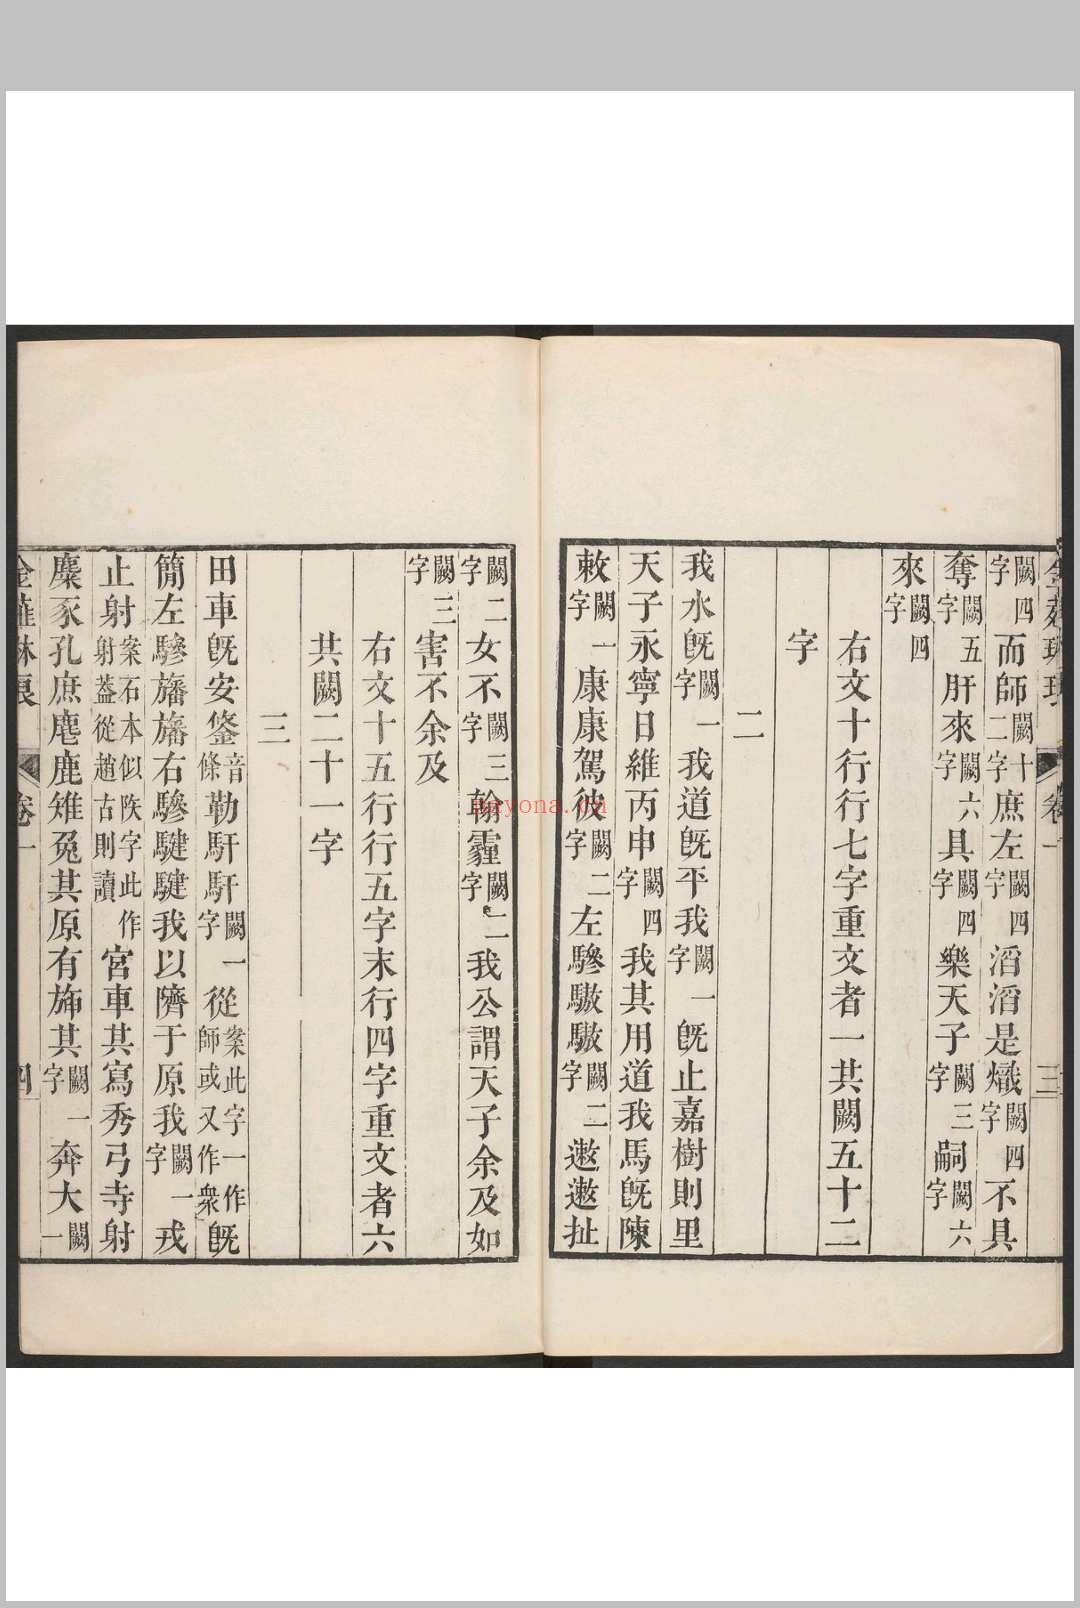 闕四字而師闕十二字庶左闕四字滔滔是熾闕四字不具
奪闕五字肝來闕六字具闕四字樂天子闕三字嗣闕六字
來闕四字
右文十行行七字重文者一共闕五十二
字
二
我水旣闕一字我道旣平我闕一字旣止嘉樹則里
天子永寧日維丙申闕四字我其用道我馬旣陳
敕闕一字康康駕彼闕二字左驂驐驐闕二字遬遬扯
闕二字女不闕三字翰霾闕二字我公謂天子余及如
闕三字害不余及
右文十五行行五字末行四字重文者六
共闕二十一字
三
田車旣安鋚音條勒馯馯闕一字從案此字一作師或又作衆旣
簡左驂旛旛右驂騝騝我以隮于原我闕一字戎
止射案石本似陕字此作射蓋從趙古則讀宮車其寫秀弓寺射
麋豕孔庶麀鹿雉兔其原有斾其闕一字奔大闕一
卷一
四
卷一
三
nzyona.cn